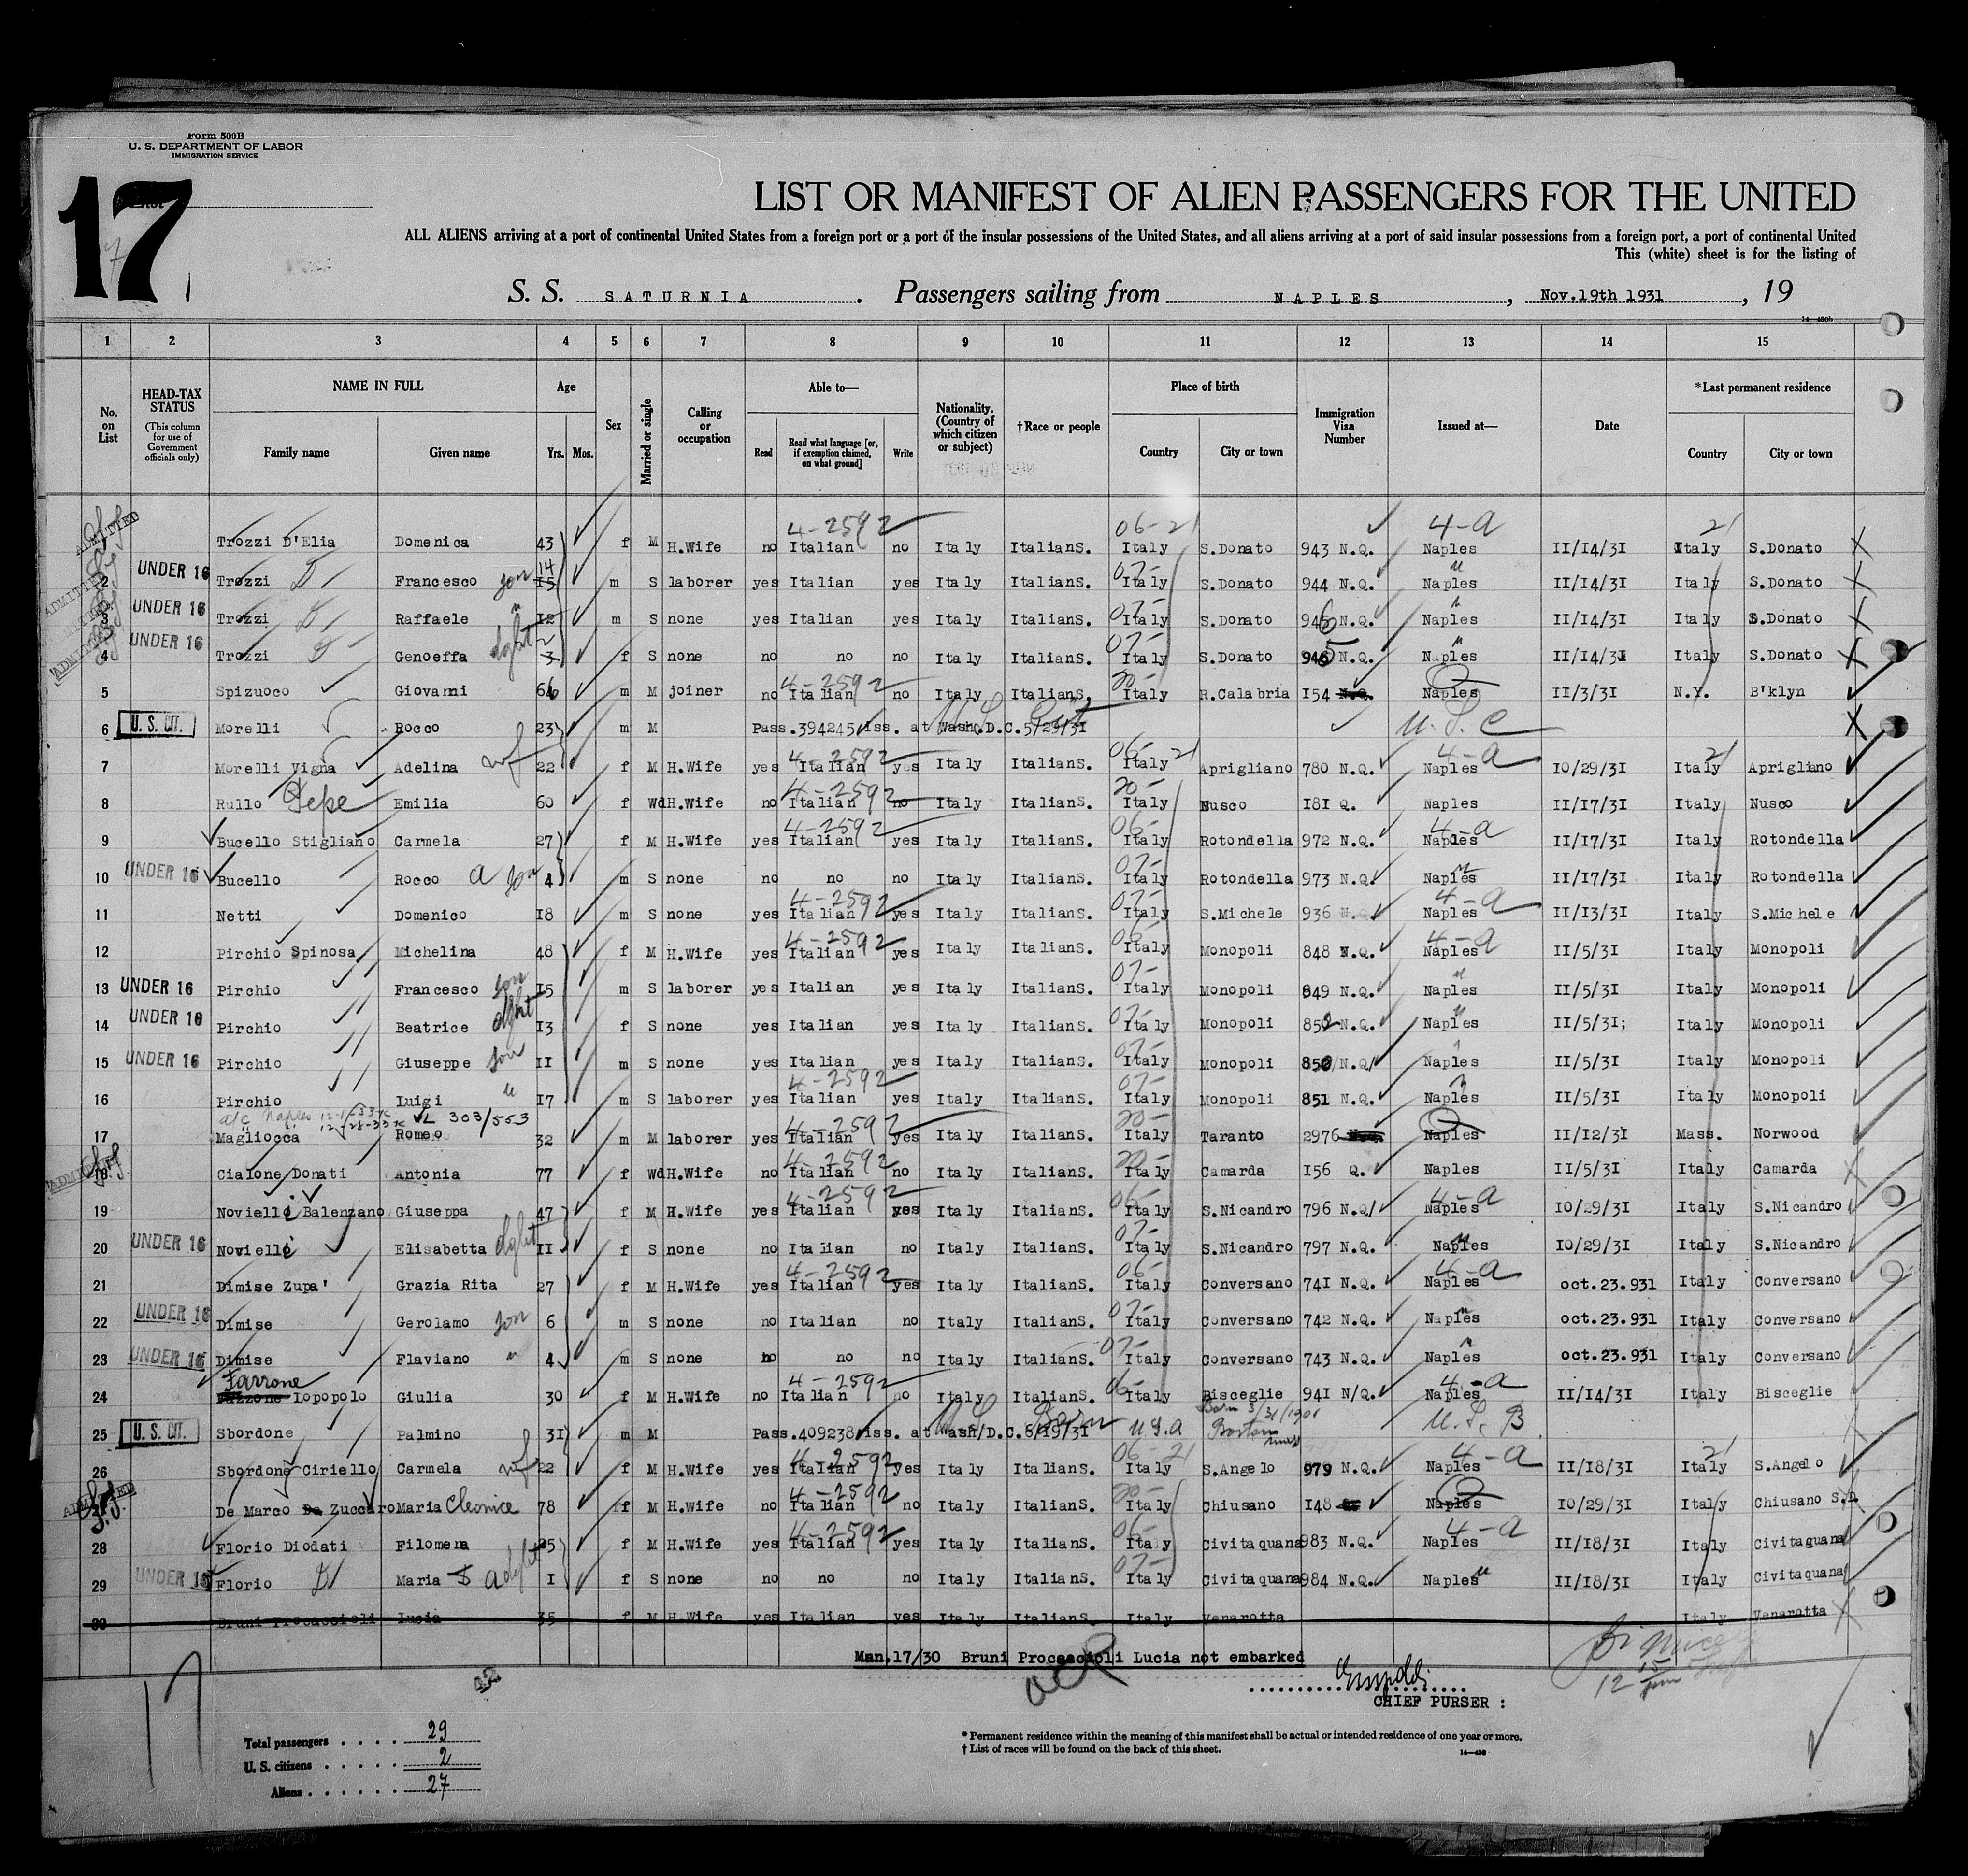 Form 500B
U. S. DEPARTMENT OF LABOR
IMMIGRATION SERVICE
17
LIST OR MANIFEST OF ALIEN PASSENGERS FOR THE UNITED
ALL ALIENS arriving at a port of continental United States from a foreign port or a port of the insular possessions of the United States, and all aliens arriving at a port of said insular possessions from a foreign port, a port of continental United
This (white) sheet is for the listing of
S. S. SATURNIA . Passengers sailing from NAPLES , Nov.19th 1931 , 19
14—480b
1 2 3 4 5 6 7 8 9 10 11 12 13 14 15
No. on List
HEAD-TAX STATUS
(This column for use of Government officials only)
NAME IN FULL
Family name Given name
Age
Yrs. Mos.
Sex
Married or single
Calling or occupation
Able to—
Read Read what language [or, if exemption claimed, on what ground] Write
Nationality. (Country of which citizen or subject)
†Race or people
Place of birth
Country City or town
Immigration Visa Number
Issued at—
Date
*Last permanent residence
Country City or town
4-2592 06-21 4-a 21
ADMITTED 1 Trozzi D'Elia Domenica 43 f M H.Wife no Italian no Italy ItalianS. Italy S.Donato 943 N.Q. Naples II/I4/3I Italy S.Donato
ADMITTED 2 UNDER 16 Trozzi Francesco son 14 I5 m S laborer yes Italian yes Italy ItalianS. 07- Italy S.Donato 944 N.Q. Naples II/I4/3I Italy S.Donato
3 UNDER 16 Trozzi Raffaele " I2 m S none yes Italian yes Italy ItalianS. 07- Italy S.Donato 946 N.Q. Naples II/I4/3I Italy S.Donato
ADMITTED 4 UNDER 16 Trozzi Genoeffa dght 2 3 f S none no no no Italy ItalianS. 07- Italy S.Donato 945 N.Q. Naples II/I4/3I Italy S.Donato
5 Spizuoco Giovanni 66 m M joiner no 4-2592 Italian no Italy ItalianS. 20- Italy R.Calabria I54 N.Q. Naples II/3/3I N.Y. B'klyn
6 U.S. CIT. Morelli Rocco 23 m M Pass.394245 iss. at Wash.D.C.5/29/3I U.S.C
7 Morelli Vigna Adelina wf 22 f M H.Wife yes 4-2592 Italian yes Italy ItalianS. 06-21 Italy Aprigliano 780 N.Q. 4-a Naples I0/29/3I 21 Italy Aprigliano
8 Rullo Pepe Emilia 60 f Wd H.Wife no 4-2592 Italian no Italy ItalianS. 20- Italy Nusco I8I Q. Naples II/I7/3I Italy Nusco
9 Bucello Stigliano Carmela 27 f M H.Wife yes 4-2592 Italian yes Italy ItalianS. 06- Italy Rotondella 972 N.Q. 4-a Naples II/I7/3I Italy Rotondella
10 UNDER 16 Bucello Rocco A son 4 m S none no no no Italy ItalianS. 07- Italy Rotondella 973 N.Q. Naples II/I7/3I Italy Rotondella
11 Netti Domenico I8 m S none yes 4-2592 Italian yes Italy ItalianS. 07- Italy S.Michele 936 N.Q. 4-a Naples II/I3/3I Italy S.Michele
12 Pirchio Spinosa Michelina 48 f M H.Wife yes 4-2592 Italian yes Italy ItalianS. 06- Italy Monopoli 848 N.Q. 4-a Naples II/5/3I Italy Monopoli
13 UNDER 16 Pirchio Francesco son I5 m S laborer yes Italian yes Italy ItalianS. 07- Italy Monopoli 849 N.Q. Naples II/5/3I Italy Monopoli
14 UNDER 16 Pirchio Beatrice dght I3 f S none yes Italian yes Italy ItalianS. 07- Italy Monopoli 852 N.Q. Naples II/5/3I; Italy Monopoli
15 UNDER 16 Pirchio Giuseppe son II m S none yes Italian yes Italy ItalianS. 07- Italy Monopoli 850 N.Q. Naples II/5/3I Italy Monopoli
16 Pirchio Luigi " I7 m S laborer yes 4-2592 Italian yes Italy ItalianS. 07- Italy Monopoli 851 N.Q. Naples II/5/3I Italy Monopoli
VL 303/553
17 Magliocca Romeo 32 m M laborer yes 4-2592 Italian yes Italy ItalianS. 20- Italy Taranto 2976 N.Q. Naples II/I2/3I Mass. Norwood
ADMITTED 18 Cialone Donati Antonia 77 f Wd H.Wife no 4-2592 Italian no Italy ItalianS. 20- Italy Camarda I56 Q. Naples II/5/3I Italy Camarda
19 Novielli Balenzano Giuseppa 47 f M H.Wife yes 4-2592 Italian yes Italy ItalianS. 06- Italy S.Nicandro 796 N.Q/ 4-a Naples I0/29/3I Italy S.Nicandro
20 UNDER 16 Novielli Elisabetta dght II f S none no Italian no Italy ItalianS. 07- Italy S.Nicandro 797 N.Q. Naples I0/29/3I Italy S.Nicandro
21 Dimise Zupa' Grazia Rita 27 f M H.Wife yes 4-2592 Italian yes Italy ItalianS. 06- Italy Conversano 74I N.Q. 4-a Naples oct.23.931 Italy Conversano
22 UNDER 16 Dimise Gerolamo son 6 m S none no Italian no Italy ItalianS. 07- Italy Conversano 742 N.Q. Naples oct.23.931 Italy Conversano
23 UNDER 16 Dimise Flaviano " 4 m S none no no no Italy ItalianS. 07- Italy Conversano 743 N.Q. Naples oct.23.931 Italy Conversano
Farrone
24 Lopopolo Giulia 30 f M H.Wife no 4-2592 Italian no Italy ItalianS. 06- Italy Bisceglie 94I N/Q. 4-a Naples II/I4/3I Italy Bisceglie
25 U.S. CIT. Sbordone Palmino 3I m M Pass.409238 iss. at Wash/D.C.6/I9/3I Born U.S.A Born 3/31/1901 Boston Mass U.S.B
26 Sbordone Ciriello Carmela wf 22 f M H.Wife yes 4-2592 Italian yes Italy ItalianS. 06-21 Italy S.Angelo 979 N.Q. 4-a Naples II/I8/3I 21 Italy S.Angelo
ADMITTED De Marco De Zuccaro Maria Cleonice 78 f M H.Wife no 4-2592 Italian no Italy ItalianS. 20- Italy Chiusano I48 Naples I0/29/3I Italy Chiusano S.D.
28 Florio Diodati Filomena 25 f M H.Wife yes 4-2592 Italian yes Italy ItalianS. 06- Italy Civitaquana 983 N.Q. 4-a Naples II/I8/3I Italy Civitaquana
29 UNDER 16 Florio Maria A dght I f S none no no no Italy ItalianS. 07- Italy Civitaquana 984 N.Q. Naples II/I8/3I Italy Civitaquana
30 Bruni Procaccioli Lucia 35 f M H.Wife yes Italian yes Italy ItalianS. Italy Venarotta Italy Venarotta
Man.17/30 Bruni Procaccioli Lucia not embarked
CHIEF PURSER :
17
Total passengers . . . . 29
U. S. citizens . . . . . 2
Aliens . . . . . . 27
* Permanent residence within the meaning of this manifest shall be actual or intended residence of one year or more.
† List of races will be found on the back of this sheet.